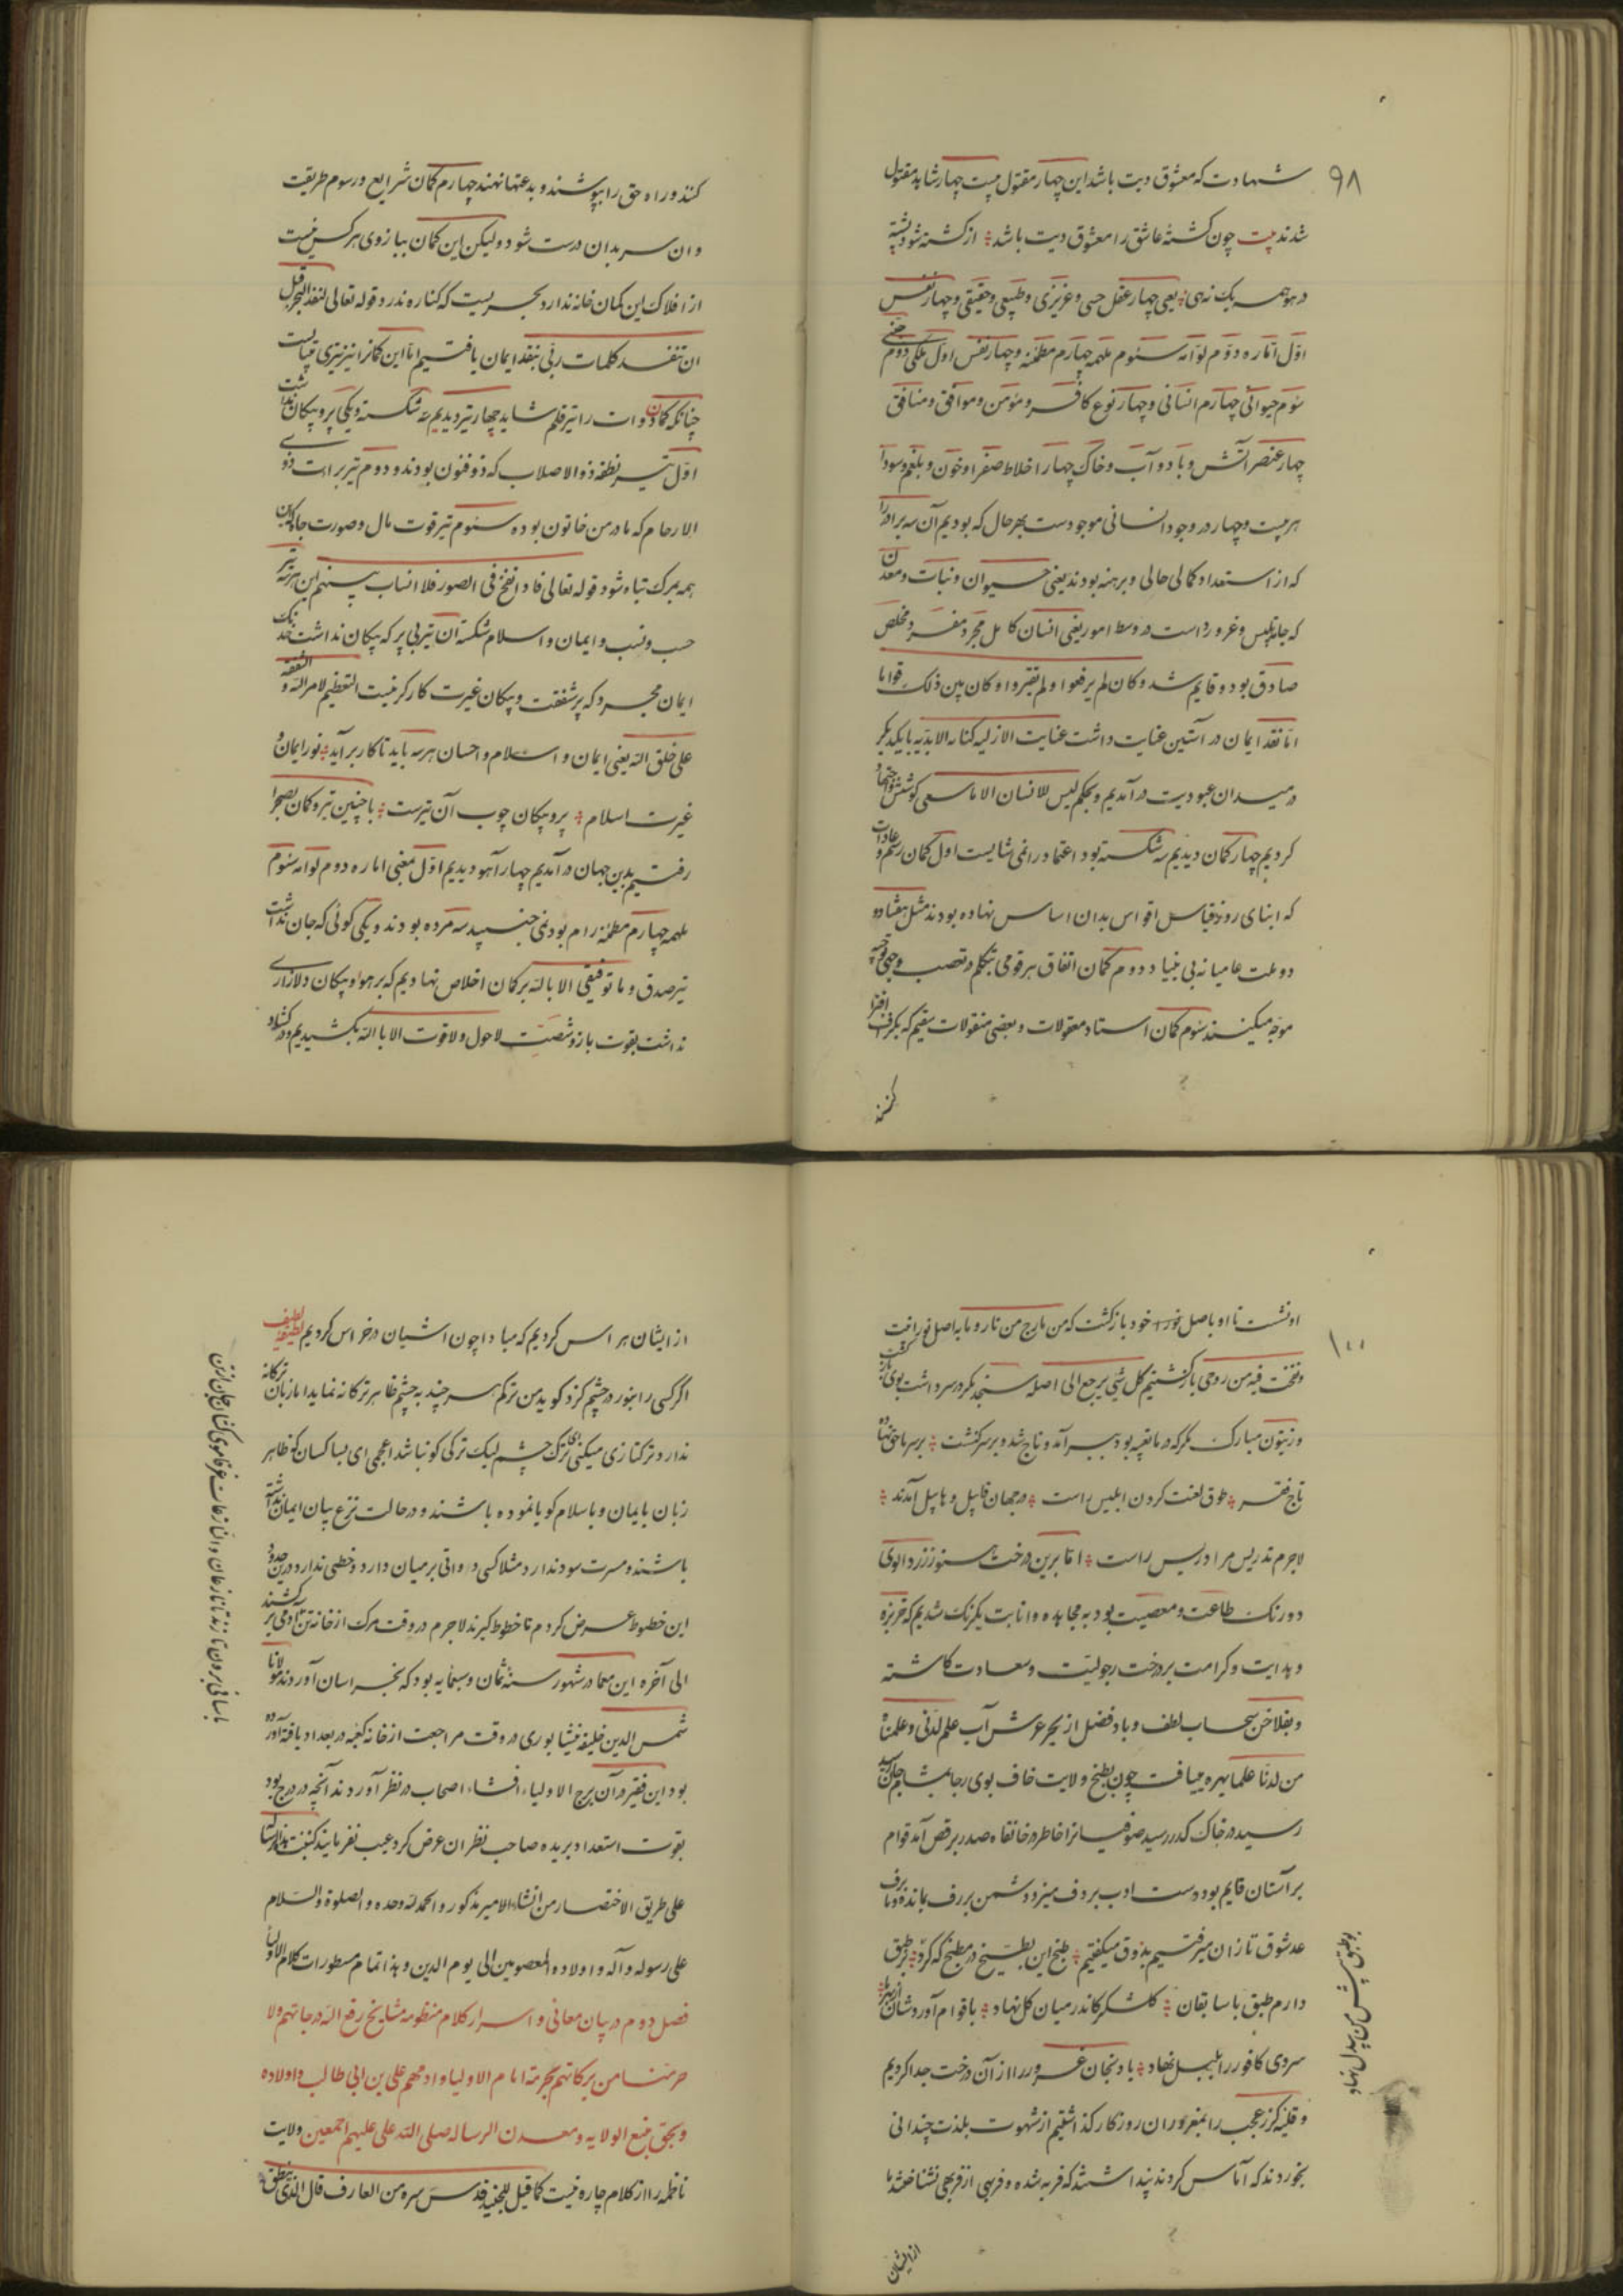 ۹۸
شهادت که معشوق دیت باشد این چهار مقتول بیست چهار شاید مقتول
شدند بیت چون کشتهٔ عاشق را معشوق دیت باشد از کشته شود پشته
در هر یک نه حی یعنی چهار عقل حسی و عزیزی و طبیعی و حقیقی و چهار نفس
اول اماره دوم لوامه سئوم ملهمه چهارم مطمئنه و چهار نفس اول ملکی دوم جنی
سئوم حیوانی چهارم انسانی و چهار نوع کافر و مؤمن و موافق و منافق
چهار عنصر آتش و باد و آب و خاک چهار اخلاط صفرا و خون و بلغم و سودا
هر بیست و چهار در وجود انسانی موجودست بهر حال که بودیم آن سه برادر را
که از استعداد کمالی خالی و برهنه بودند یعنی حیوان و نبات و معدن
که جامه تلبیس و غرور داست در وسط امور یعنی انسان کامل مجرد مفرد مخلص
صادق بود و قایم شد و کان لم یرفعوا و لم یقتروا و کان بین ذلک قواما
اما نقد ایمان در آستین عنایت داشت عنایت الازلیه کفایه الابدیه بایکدیگر
در میدان عبودیت در آمدیم و بحکم لیس للانسان الا ما سعی کوشش و اجتهاد
کردیم چهار کمان دیدیم سه شکسته بود اعتماد را نمی شایست اول کمان رسم و عادات
که ابنای روز بقیاس اقواس بدان اساس نهاده بودند مثل هفتاد و
دو ملت عامیانه بی بنیاد دوم کمان اتفاق هر قومی بتکلم و تعصب وجهی توجیه
موجه میکنند سئوم کمان استاد معقولات و بعضی منقولات سقیم که بگراف افترا
کنند
کنند و راه حق را بپوشند و بدعتها نهند چهارم کمان شرایع و رسوم طریقت
و ان سر بدان درست شود ولیکن این کمان ببازوی هر کس نیست
از افلاک این کمان خانه ندارد بحریست که کناره ندرد قوله تعالی لنفد البحر قبل
ان تنفد کلمات ربی بنقد ایمان یافتیم اما این کمانرا نیز تیری میبایست
چنانکه کمان دوات را تیر قلم شاید چهار تیر دیدیم سه شکسته و یکی پر و پیکان نداشت
اول تیر نطفه ذو الاصلاب که ذو فنون بودند و دوم تیر برات ذوی
الارحام که مادر من خاتون بوده سئوم تیر قوت مال و صورت جاه که این
همه بمرگ تباه شود قوله تعالی فاذا نفخ فی الصور فلا انساب بینهم این هر سه تیر
حسب و نسب و ایمان و اسلام شکسته آن تیر بی پر که پیکان نداشت خدنگ
ایمان مجرد که پر شفقت و پیکان غیرت کارگر نیست التعظیم لامر الله و الشفقه
علی خلق الله یعنی ایمان و اسلام و احسان هر سه باید تا کار برآید نور ایمان و
غیرت اسلام پر و پیکان چوب آن تیرست باچنین تیر و کمان بصحرا
رفتیم بدین جهان در آمدیم چهار آهو دیدیم اول معنی اماره دوم لوامه سئوم
ملهمه چهارم مطمئنه رام بود نمی جنبید سه مرده بودند و یکی گوئی که جان نداشت
تیر صدق و ما توفیقی الا بالله بر کمان اخلاص نهادیم که پر هوا و پیکان دلازاری
نداشت بقوت بازو شصت لاحول و لا قوت الا بالله بکشیدیم و در کشاد
۱۰۰
او نشست تا او باصل خود بازگشت که من مارج من نار و ما باصل نور رفت
و نفخت فیه من روحی بازگشتیم کل شئ یرجع الی اصله
و زیتون مبارک مگر که در مابقیه بود بسر آمد و تاج شد و بر سر گشت بر سر ما حق نهاده
تاج فقر طوق لعنت کردن ابلیس راست در جهان قابیل و هابیل آمدند
لاجرم تدریس مر ادریس راست اما برین درخت هنوز زرد الوی
دو رنگ طاعت و معصیت بود به مجاهده و انابت یکرنگ شدیم که خربزه
و هدایت و کرامت بر درخت رجولیت و سعادت کاشته
و بفلاخن سحاب لطف و باد فضل از بحر عرش آب علم لدنی و علمناه
من لدنا علما بهره مییافت چون بطیخ ولایت خاف بوی رجا بمشام جان رسید
رسید در خاک کدر رسید صوفیانرا خاطر در خانقاه صدر برقص آمد قوام
بر آستان قایم بود دست ادب بر دف میزد دشمن بر رف بمانده و ما برف
عد شوق تازان میرفتیم بذوق میگفتیم طبخ این بطیخ در مطبخ که کرد بر طبق
دارم طبق با سابقان گلشکر کاندر میان گل نهاد باقوام آورد شان از سر
سردی کافور را بلبل نهاد باد و بنجان غرور را از آن درخت جدا کردیم
و قلیه گزر عجب را بمغروران روزگار گذاشتیم از شهوت بلذت چندانی
بخوردند که آماس کردند پنداشتند که فربه شده و فربهی از فربهی نشناختند ما
از ایشان
از ایشان هراس کردیم که مبادا چون اشیان در خراس گردیم لطیف لطیفه
اگر کسی را بخورد چشم گزد گوید من ترکم هر چند به چشم ظاهر ترکانه نماید اما زبان ترکانه
ندارد ترکتازی میکنی ای ترک چشم لیک ترکی گو نباشد اعجمی ای بسا کسان که ظاهر
زبان بایمان و باسلام گویا نموده باشند و در حالت نزع بیان ایمان نداشته
باشند و مسرت سود ندارد مثلا کسی دواتی بر میان دارد و خطی ندارد درین حدود
این خطوط عرض کردم تا خطوط گیرند لاجرم در وقت مرگ از خانه تن آدمی بر کشند
الی آخره این معما در شهور سنهٔ ثمان و سبعمایه بود که بخراسان آوردند مولانا
شمس الدین خلیفه نیشابوری در وقت مراجعت از خانه کعبه در بغداد یافته آورده
بود این فقیر در آن برج الاولیاء افشاء اصحاب در نظر آوردند آنچه در درج بود
بقوت استعداد بریده صاحب نظران عرض کرد عیب نفرمایند
علی طریق الاختصار من انشاء الامیر مذکور و الحمد لله وحده و الصلوة و السلام
علی رسوله و آله و اولاده المعصومین الی یوم الدین و هذا تمام مسطورات کلام الاولیا
فصل دوم در بیان معانی و اسرار کلام منظومه مشایخ رفع الله درجاتهم و لا
حرمنا من برکاتهم بحرمة امام الاولیا و ادمهم علی بن ابی طالب و اولاده
و بحق منبع الولایه و معدن الرساله صلی الله علی علیهم اجمعین ولایت
ناظمه را از کلام چاره نیست کما قیل للجنید قدس سره من العارف قال الذی ینطق